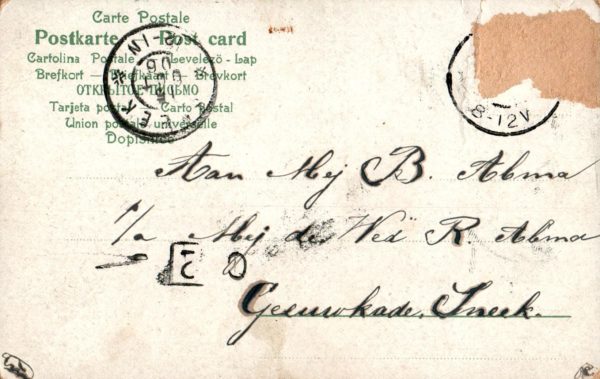 Carte Postale
Postkarte — Post card
Cartolina Postale — Levelezö-Lap
Brefkort — Briefkaart — Brevkort
ОТКРЫТОЕ ПИСЬМО
Tarjeta postal — Carto Postal
Union postale universelle
Dopisnice
8-12V
Aan Mej B. Abma
1/a Mej de Wed R. Abma
Geeuwkade, Sneek.